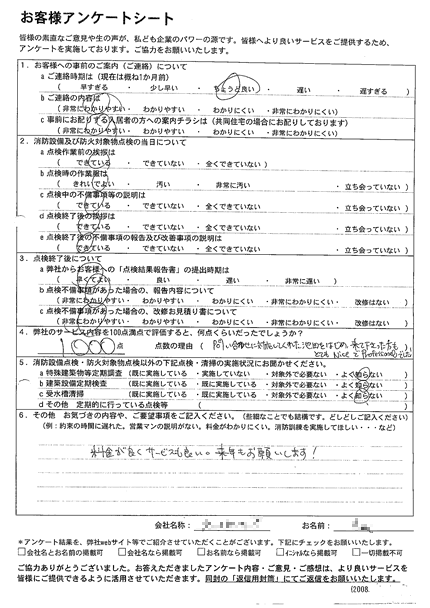 お客様アンケートシート
皆様の素直なご意見や生の声が、私ども企業のパワーの源です。皆様へより良いサービスをご提供するため、
アンケートを実施しております。ご協力をお願いいたします。
1．お客様への事前のご案内（ご連絡）について
a ご連絡時期は（現在は概ね1か月前）
（ 早すぎる ・ 少し早い ・ ちょうど良い ・ 遅い ・ 遅すぎる ）
b ご連絡の内容は
（ 非常にわかりやすい ・ わかりやすい ・ わかりにくい ・ 非常にわかりにくい ）
c 事前にお配りする入居者の方への案内チラシは（共同住宅の場合にお配りしております）
（ 非常にわかりやすい ・ わかりやすい ・ わかりにくい ・ 非常にわかりにくい ）
2．消防設備及び防火対象物点検の当日について
a 点検作業前の挨拶は
（ できている ・ できていない ・ 全くできていない ）
b 点検時の作業服は
（ きれいでよい ・ 汚い ・ 非常に汚い ・ 立ち会っていない ）
c 点検中の不備事項等の説明は
（ できている ・ できていない ・ 全くできていない ・ 立ち会っていない ）
d 点検終了後の挨拶は
（ できている ・ できていない ・ 全くできていない ・ 立ち会っていない ）
e 点検終了後の不備事項の報告及び改善事項の説明は
（ できている ・ できていない ・ 全くできていない ・ 立ち会っていない ）
3．点検終了後について
a 弊社からお客様への「点検結果報告書」の提出時期は
（ 早くてよい ・ 良い ・ 遅い ・ 非常に遅い ）
b 点検不備事項があった場合の、報告内容について
（ 非常にわかりやすい ・ わかりやすい ・ わかりにくい ・ 非常にわかりにくい ・ 改修はない ）
c 点検不備事項があった場合の、改修お見積り書について
（ 非常にわかりやすい ・ わかりやすい ・ わかりにくい ・ 非常にわかりにくい ・ 改修はない ）
4．弊社のサービス内容を100点満点で評価すると、何点くらいだったでしょうか？
1000点 点数の理由（ 問い合わせに対応してくれた池田をはじめ、来て下さった方も
とても Nice で Professional でした
5．消防設備点検・防火対象物点検以外の下記点検・清掃の実施状況にお聞かせください。
a 特殊建築物等定期調査（既に実施している ・ 実施していない ・ 対象外で必要ない ・ よく知らない ）
b 建築設備定期検査 （既に実施している ・ 既に実施している ・ 対象外で必要ない ・ よく知らない ）
c 受水槽清掃 （既に実施している ・ 既に実施している ・ 対象外で必要ない ・ よく知らない ）
d その他 定期的に行っている点検等 （ ）
6．その他 お気づきの内容や、ご要望事項をご記入ください。（些細なことでも結構です。どしどしご記入ください）
（例：約束の時間に遅れた。営業マンの説明がない。料金がわかりにくい。消防訓練を実施してほしい・・・など）
料金が良くサービスも良い。来年もお願いします！
会社名称：
お名前：
*アンケート結果を、弊社webサイト等でご紹介させていただくことがございます。下記にチェックをお願いいたします。
□会社名とお名前の掲載可 □会社名なら掲載可 □お名前なら掲載可 □ｲﾆｼｬﾙなら掲載可 □一切掲載不可
ご協力ありがとうございました。お答えただきましたアンケート内容・ご意見・ご感想は、より良いサービスを
皆様にご提供できるように活用させていただきます。同封の「返信用封筒」にてご返信をお願いいたします。
(2008.